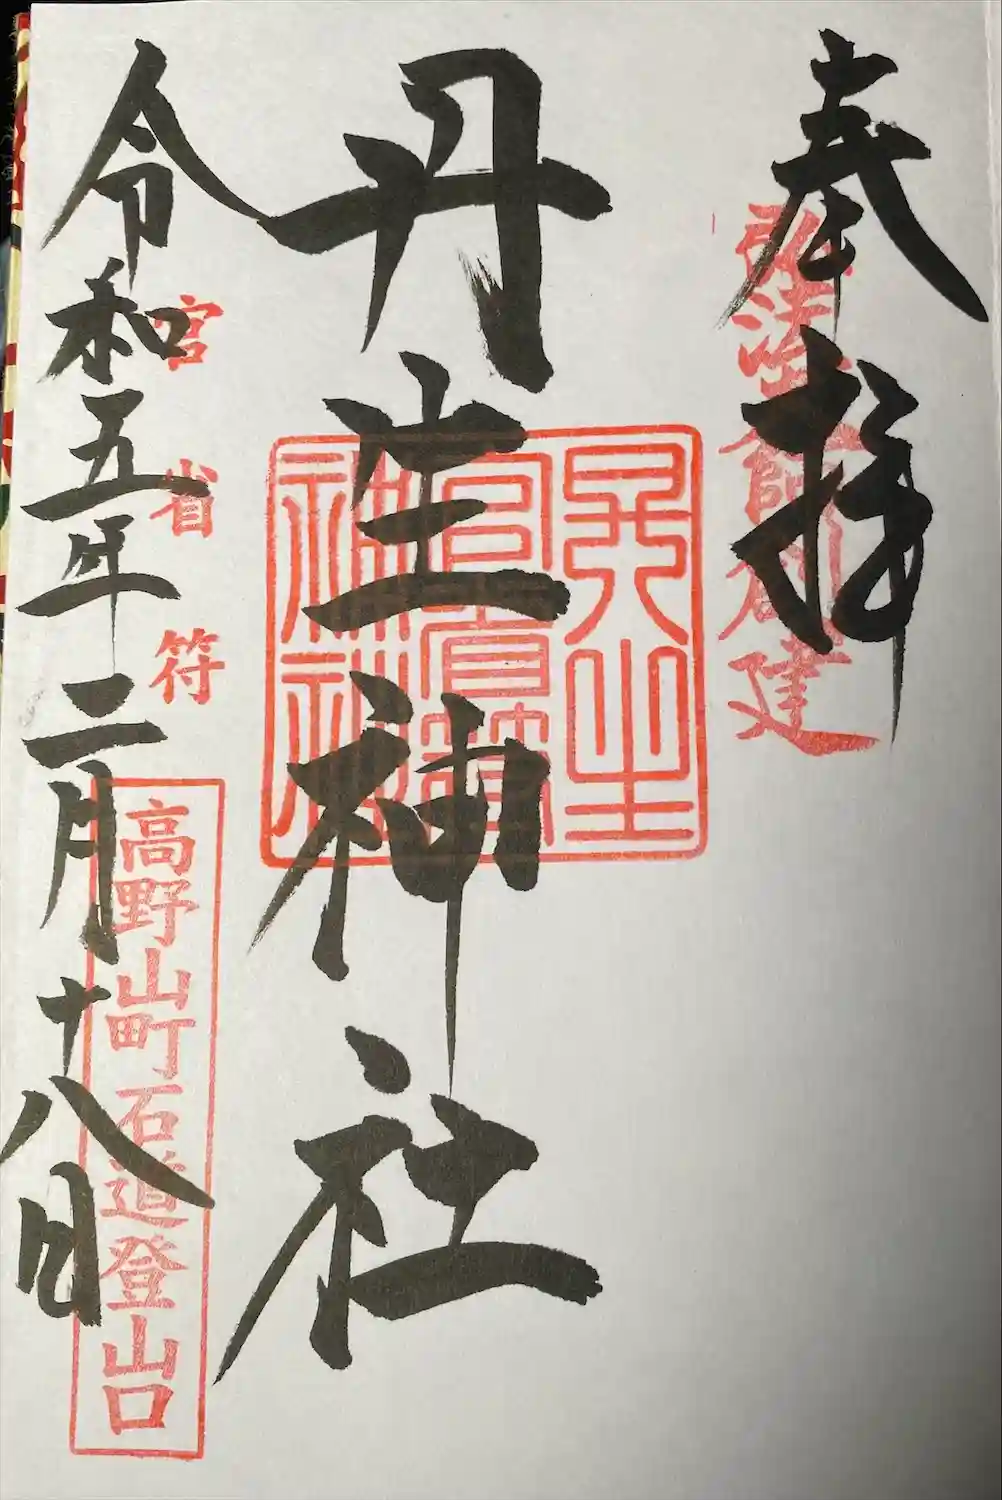 奉拝
弘法大師創建
丹生神社
官省符
令和五年二月十八日
高野山町石道登山口